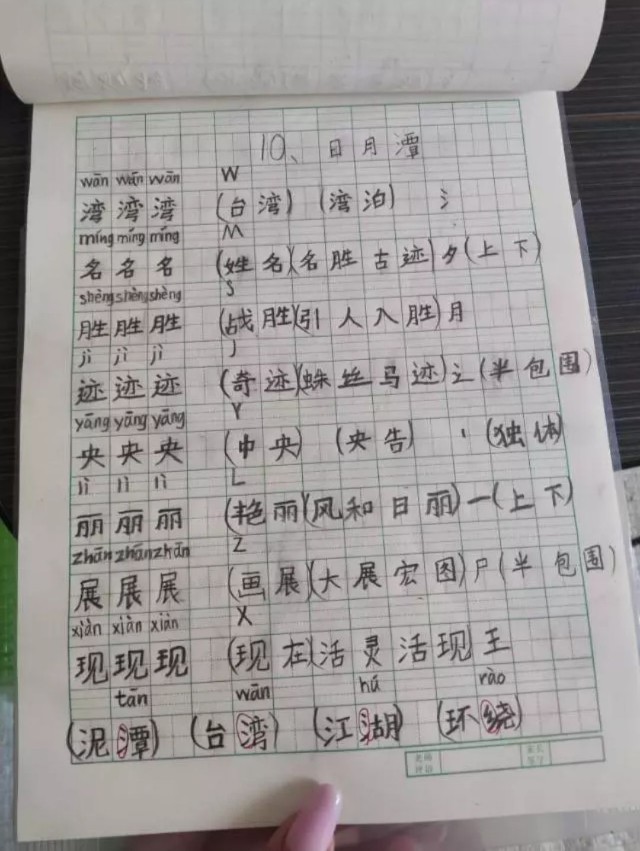 10、日月潭
wān wān wān W
湾湾湾 (台湾) (湾泊) 氵
míng míng míng M
名名名 (姓名)(名胜古迹)夕(上下)
shèng shèng shèng S
胜胜胜 (战胜)(引人入胜)月
jì jì jì J
迹迹迹 (奇迹)(蛛丝马迹)辶(半包围)
yāng yāng yāng Y
央央央 (中央) (央告) 丨 (独体)
lì lì lì L
丽丽丽 (艳丽)(风和日丽)一(上下)
zhǎn zhǎn zhǎn Z
展展展 (画展)(大展宏图)尸(半包围)
xiàn xiàn xiàn X
现现现 (现在)(活灵活现王
tán wān hú rào
(泥潭) (台湾) (江湖) (环绕)